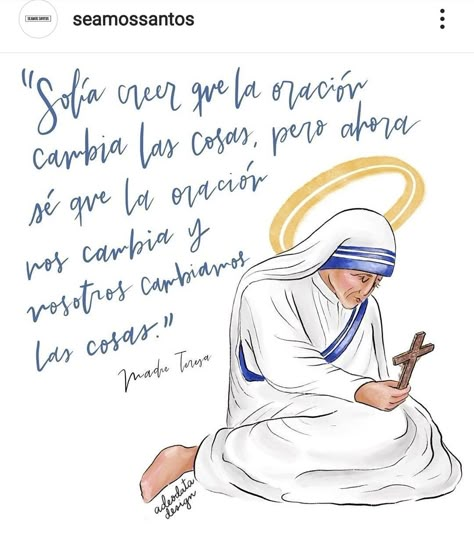 SEAMOS SANTOS
seamossantos
"Solía creer que la oración
cambia las cosas, pero ahora
sé que la oración
nos cambia y
nosotros cambiamos
las cosas."
Madre Teresa
adeodata
design